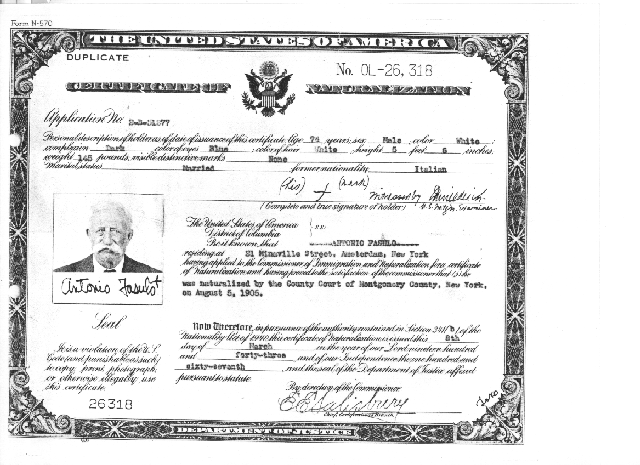 Form N-570
THE UNITED STATES OF AMERICA
DUPLICATE
No. OL-26,318
CERTIFICATE OF NATURALIZATION
Application No.
Personal description of holder as of date of issuance of this certificate: Age 74 years; sex Male; color White;
complexion Dark; color of eyes Blue; color of hair White; height 5 feet 6 inches;
weight 145 pounds; visible distinctive marks None
Marital status Married former nationality Italian
(his) + (mark)
(Complete and true signature of holder)
The United States of America
District of Columbia } ss:
Be it known, that ANTONIO FASULO
residing at 21 Minaville Street, Amsterdam, New York
having applied to the Commissioner of Immigration and Naturalization for a certificate
of Naturalization and having proved to the satisfaction of the commissioner that he
was naturalized by the County Court of Montgomery County, New York,
on August 5, 1905.
Antonio Fasulo +
Seal
Now Therefore, in pursuance of the authority contained in Section of the
Nationality Act of 1940 this certificate of Naturalization is issued this 8th
day of March in the year of our Lord nineteen hundred
and forty-three and of our Independence the one hundred and
sixty-seventh and the seal of the Department of Justice affixed
pursuant to statute
It is a violation of the U.S.
Code (and punishable as such)
to copy, print, photograph,
or otherwise illegally use
this certificate.
By direction of the Commissioner
26318
DEPARTMENT OF JUSTICE